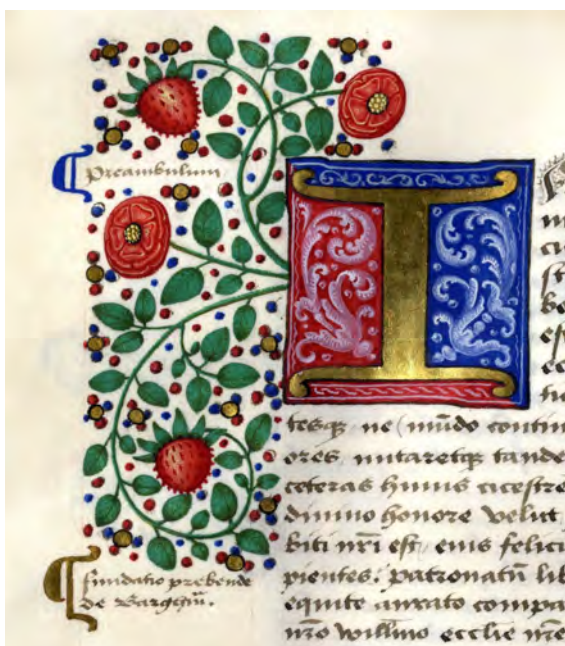 ¶ Preambulum
I
tesq; ne mūdo contin
ores mutaretq; tande
ceteras huius cicestre
diuino honore velut
biti nr̄i est eius felici
pientes. patronatū lib
equite aurato compa
nr̄o willm̄o ecclie nr̄e
¶ fundatio prebende
de Bargh̄m.